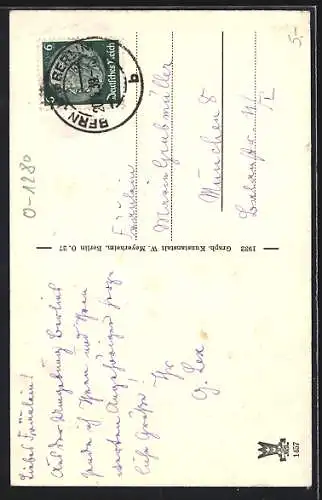 Liebes Fräulein!
Aus der Umgebung Berlins
sende ich Ihnen und Ihren
werten Angehörigen herz-
liche Grüße! Ihr
G. Lex
Fräulein
Maria Grabmüller
München 8
1933 Graph. Kunstanstalt W. Meyerheim, Berlin O. 27
Deutsches Reich
6
BERN
b
O-1280
5,-
1457